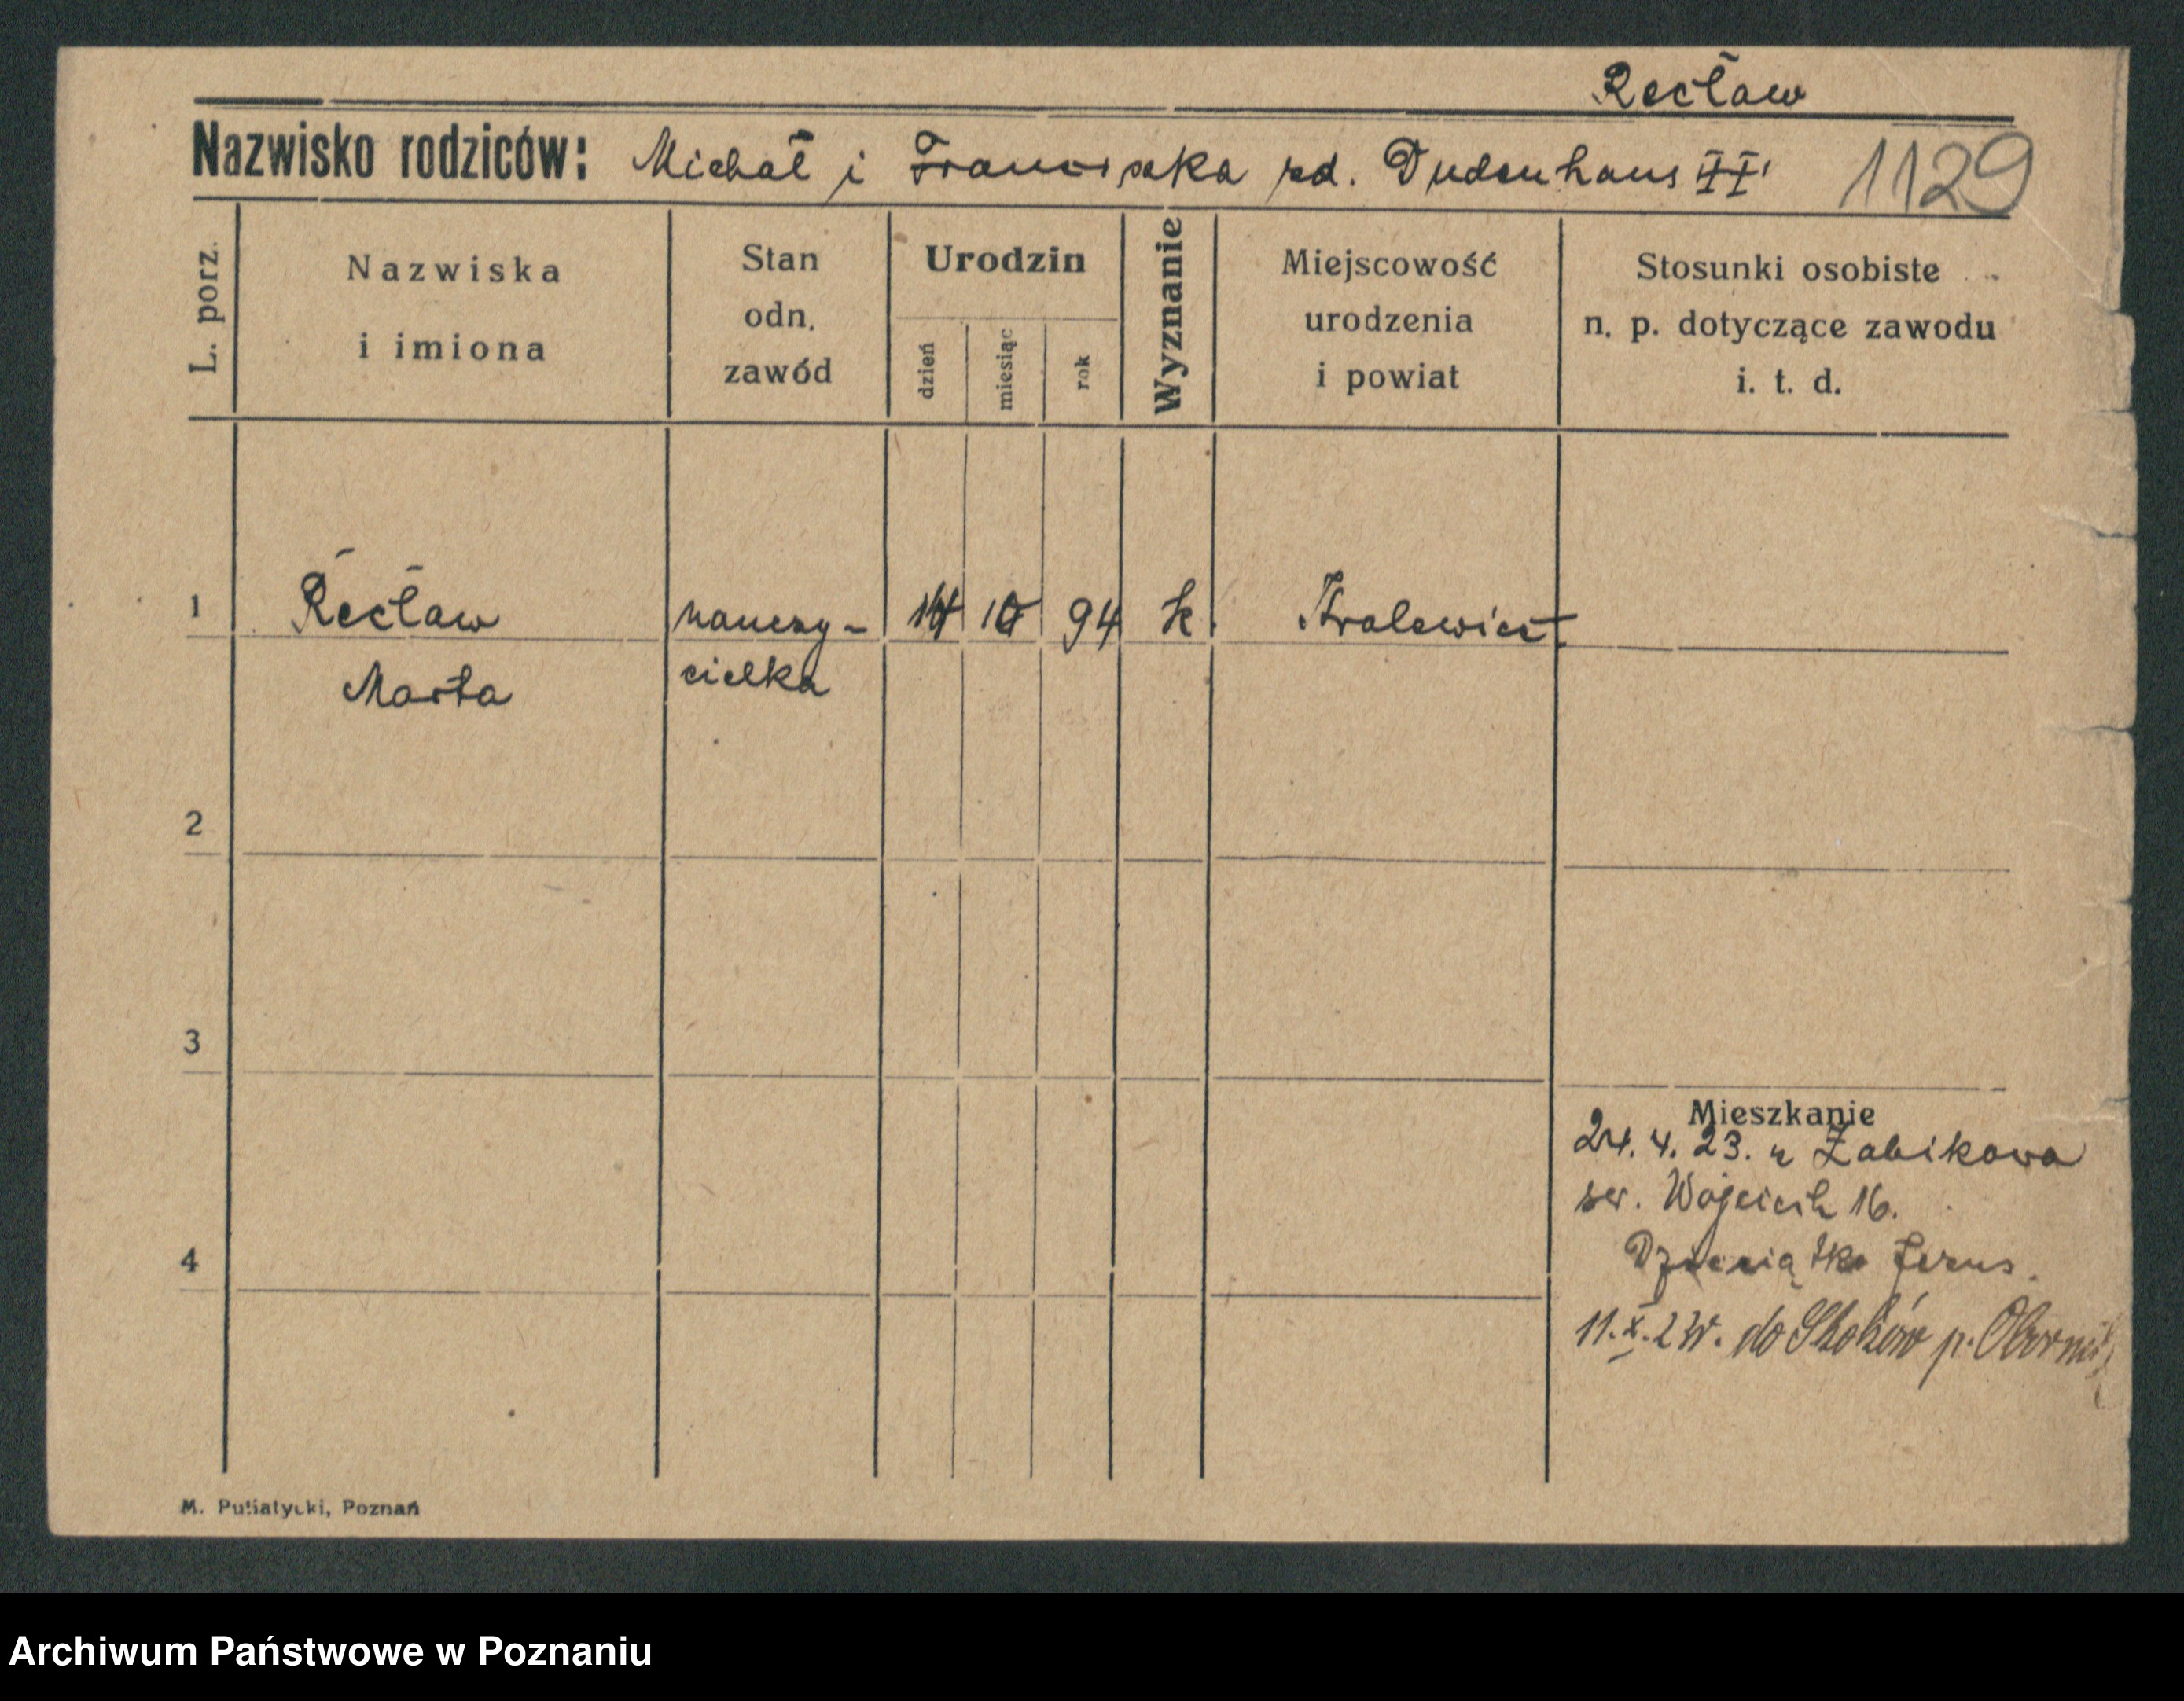 Recław
Nazwisko rodziców: Michał i Franciszka rd. Dudenhaus II 1129
L. porz.
Nazwiska
i imiona
Stan
odn.
zawód
Urodzin
dzień
miesiąc
rok
Wyznanie
Miejscowość
urodzenia
i powiat
Stosunki osobiste
n. p. dotyczące zawodu
i. t. d.
1 Recław nauczy- 14 10 94 k.
Marta cielka
2
3
4
Mieszkanie
24. 4. 23. z Żabikowa
św. Wojciech 16.
Dzieciątko Jezus.
11.X.23r. do Skoków p. Oborniki
M. Putiatycki, Poznań
Archiwum Państwowe w Poznaniu